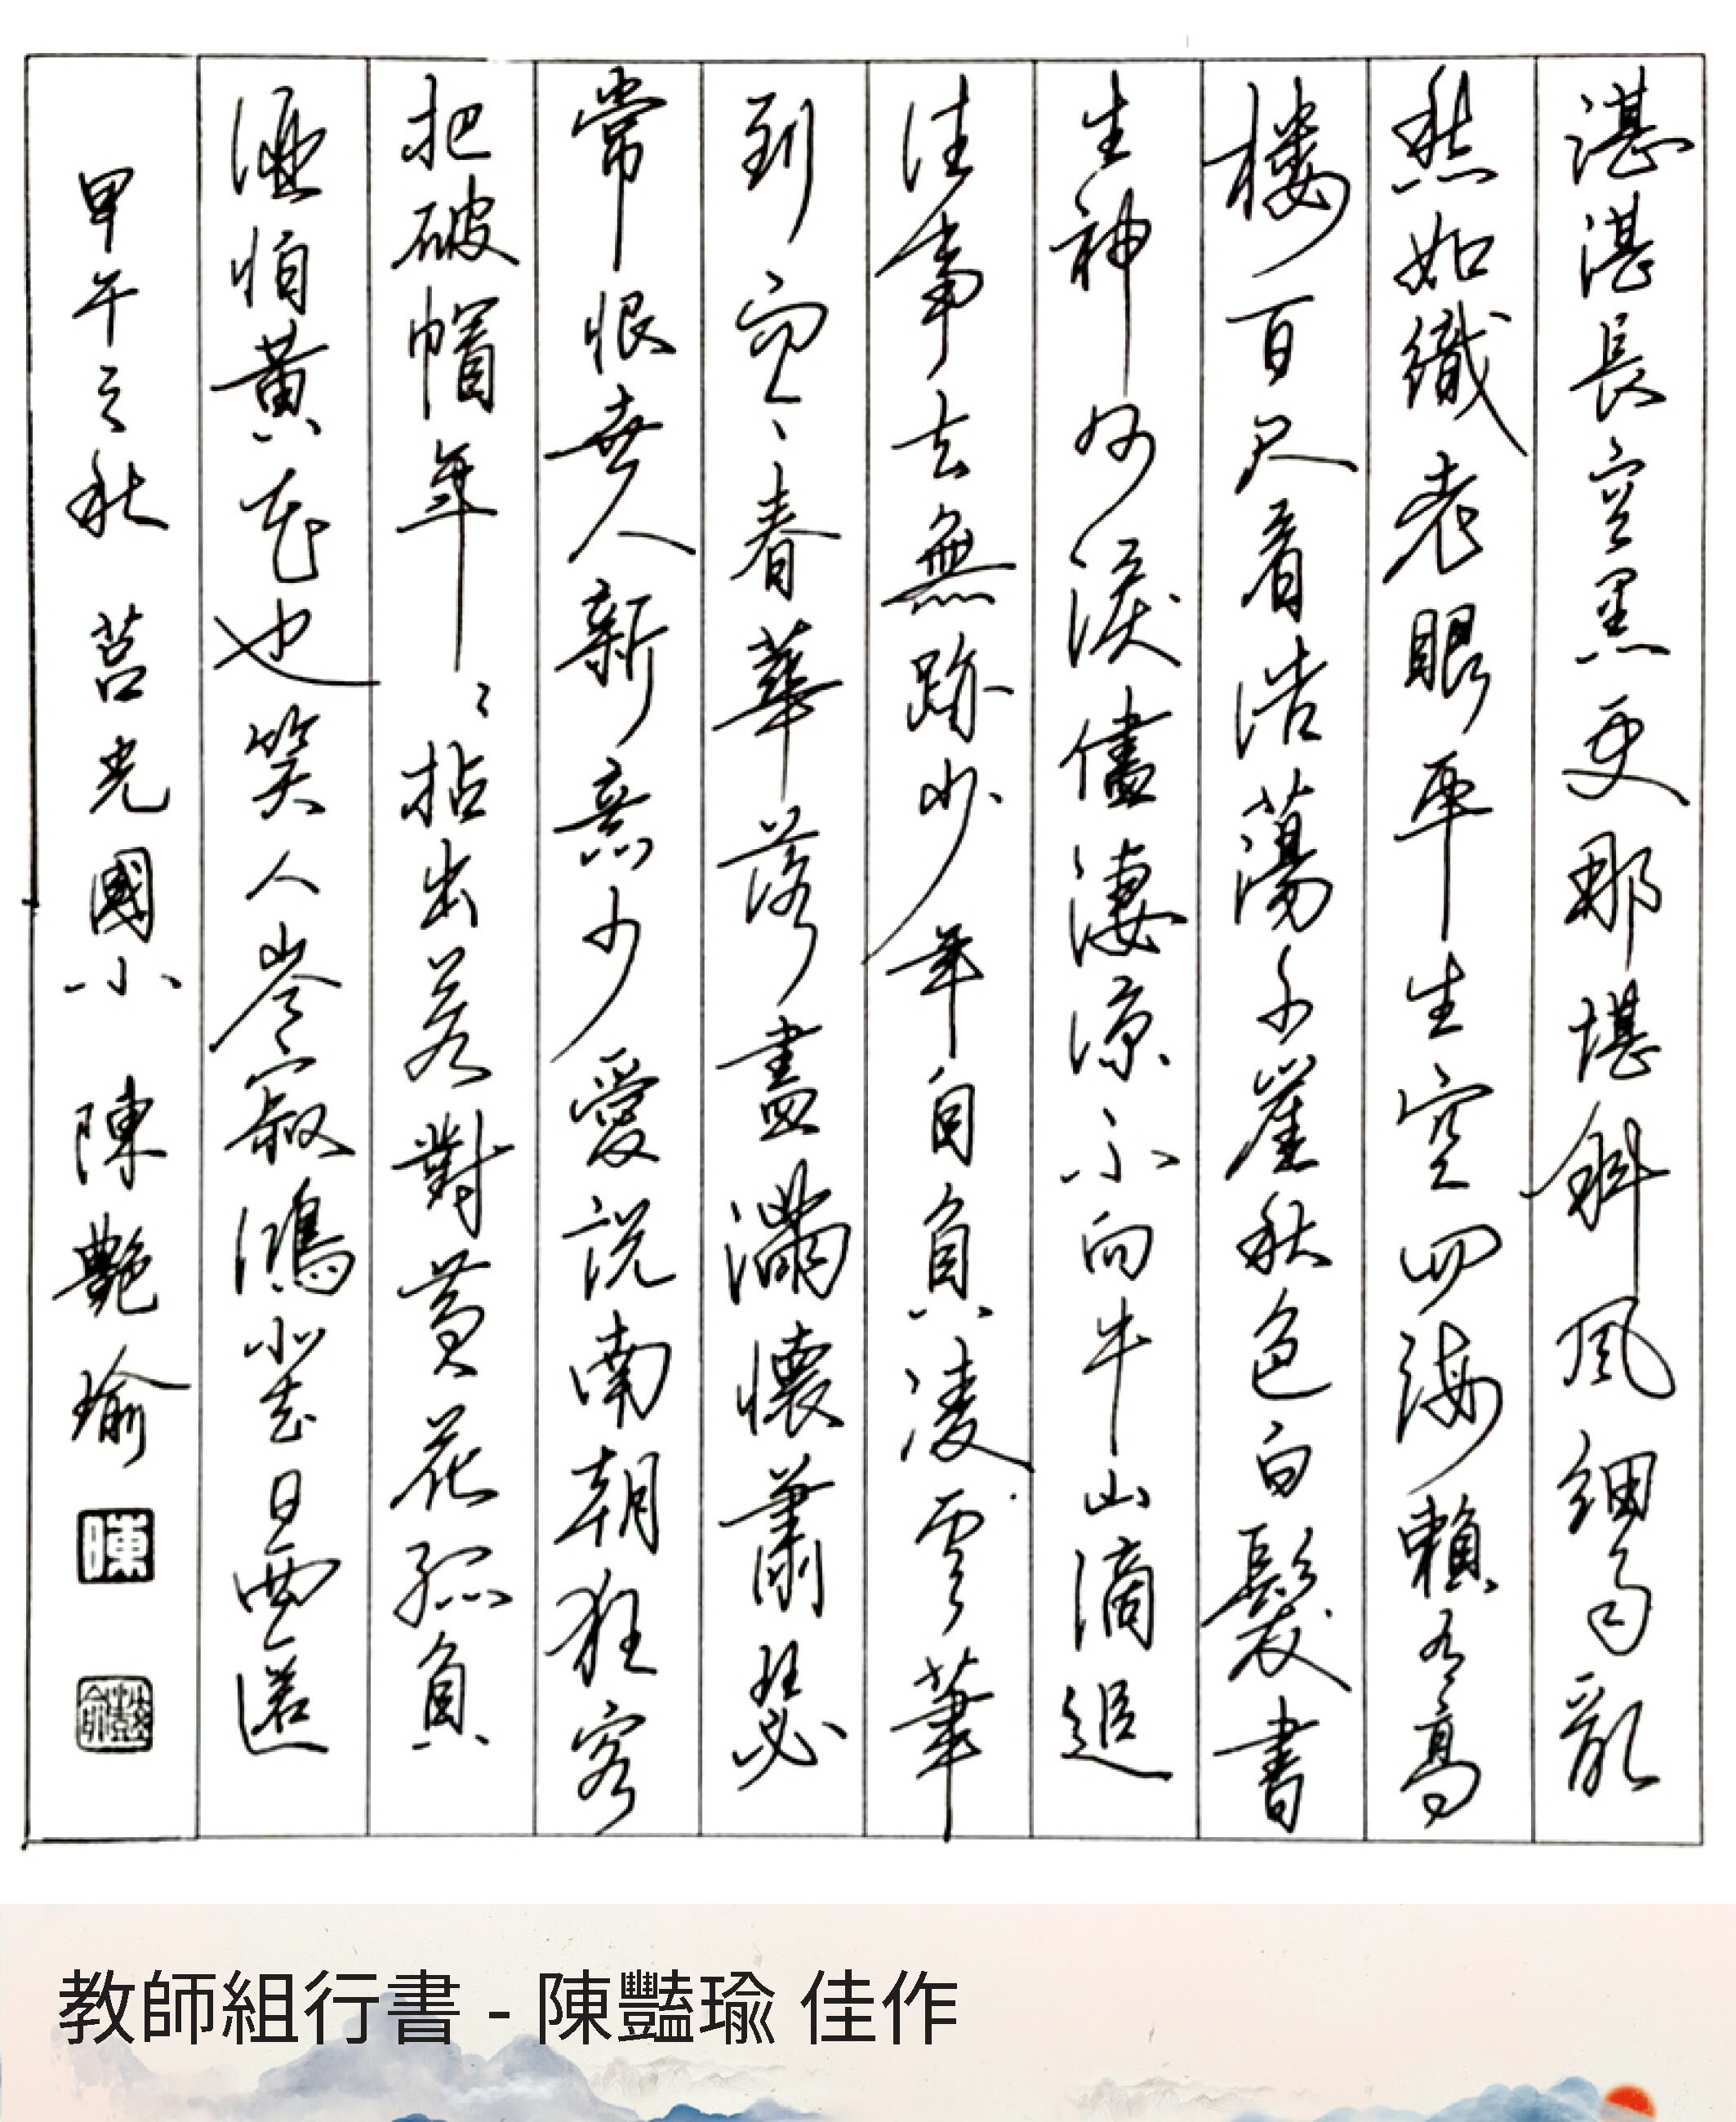 湛湛長空黑更那堪斜風細雨亂
愁如織老眼平生空四海賴有高
樓百尺看浩蕩千崖秋色白髮書
生神州淚儘淒涼不向牛山滴追
往事去無跡少年自負凌雲筆
到而今春華落盡滿懷蕭瑟
常恨世人新意少愛說南朝狂客
把破帽年年拈出若對黃花孤負
酒怕黃花也笑人岑寂鴻北去日西匿
甲午之秋 莒光國小 陳艷瑜
陳
教師組行書 - 陳豔瑜 佳作